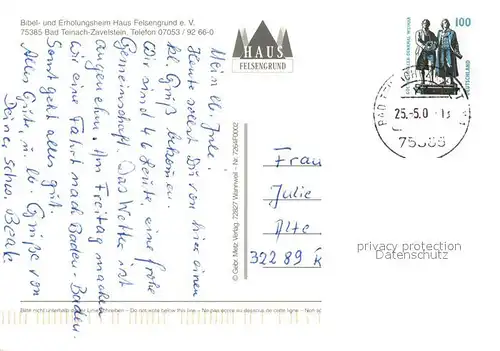 Bibel- und Erholungsheim Haus Felsengrund e. V.
75385 Bad Teinach-Zavelstein, Telefon 07053 / 92 66-0
HAUS
FELSENGRUND
100
DEUTSCHLAND
25.-5.0
75385
Mein lb. Julie!
Heute sollst Du von hier einen
kl. Gruß bekommen.
Wir sind 46 Leute, eine frohe
Gemeinschaft. Das Wetter ist
angenehm. Am Freitag machen
wir eine Fahrt nach Baden-Baden.
Sonst geht alles gut.
Alles Gute, u. lb. Grüße von
Deiner Schw. Beate
© Gebr. Metz Verlag, 72827 Wannweil - Nr.
Frau
Julie
Alte
322 89
privacy protection
Datenschutz
Bitte nicht unterhalb dieser Linie schreiben - Do not write below this line - Ne pas écrire au dessous de cette ligne - Non